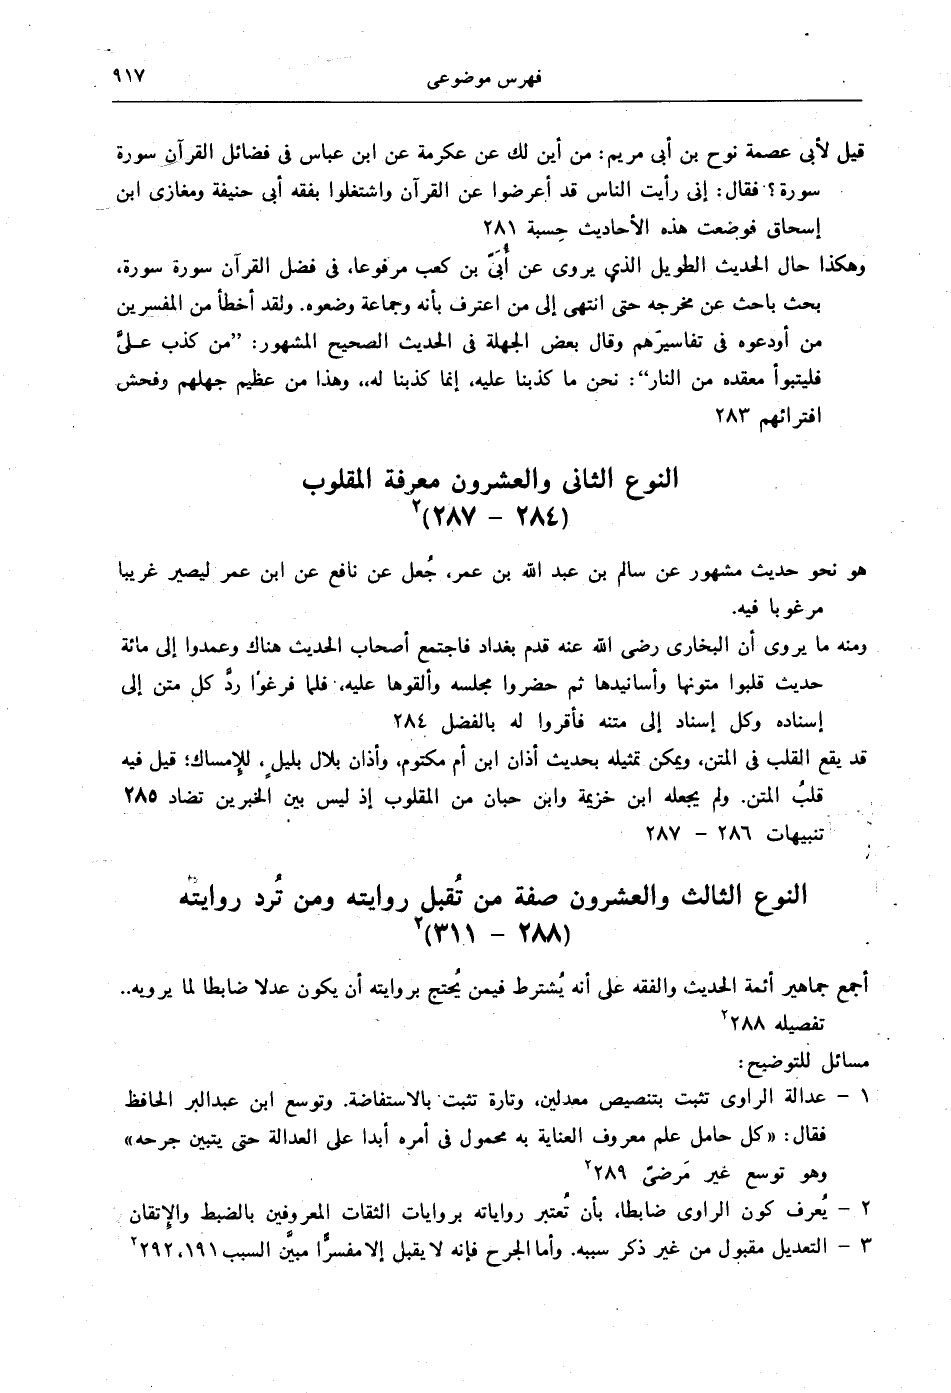 فهرس موضوعى ٩١٧
قيل لأبى عصمة نوح بن أبى مريم: من أين لك عن عكرمة عن ابن عباس فى فضائل القرآن سورة
سورة؟ فقال: إنى رأيت الناس قد أعرضوا عن القرآن واشتغلوا بفقه أبى حنيفة ومغازى ابن
إسحاق فوضعت هذه الأحاديث حِسبة ٢٨١
وهكذا حال الحديث الطويل الذي يروى عن أُبَىّ بن كعب مرفوعا، فى فضل القرآن سورة سورة،
بحث باحث عن مخرجه حتى انتهى إلى من اعترف بأنه وجماعة وضعوه. ولقد أخطأ من المفسرين
من أودعوه فى تفاسيرَهم وقال بعض الجهلة فى الحديث الصحيح المشهور: ”من كذب علىَّ
فليتبوأ معقده من النار“: نحن ما كذبنا عليه، إنما كذبنا له،، وهذا من عظيم جهلهم وفحش
افترائهم ٢٨٣
النوع الثانى والعشرون معرفة المقلوب
(٢٨٤ – ٢٨٧)٢
هو نحو حديث مشهور عن سالم بن عبد الله بن عمر، جُعل عن نافع عن ابن عمر ليصير غريبا
مرغوبا فيه.
ومنه ما يروى أن البخارى رضى الله عنه قدم بغداد فاجتمع أصحاب الحديث هناك وعمدوا إلى مائة
حديث قلبوا متونها وأسانيدها ثم حضروا مجلسه وألقوها عليه، فلما فرغوا ردَّ كل متن إلى
إسناده وكل إسناد إلى متنه فأقروا له بالفضل ٢٨٤
قد يقع القلب فى المتن، ويمكن تمثيله بحديث أذان ابن أم مكتوم، وأذان بلال بليلٍ، للإمساك؛ قيل فيه
قلبُ المتن. ولم يجعله ابن خزيمة وابن حبان من المقلوب إذ ليس بين الخبرين تضاد ٢٨٥
تنبيهات ٢٨٦ – ٢٨٧
النوع الثالث والعشرون صفة من تُقبل روايته ومن تُرد روايته
(٢٨٨ – ٣١١)٢
أجمع جماهير أئمة الحديث والفقه على أنه يُشترط فيمن يُحتج بروايته أن يكون عدلا ضابطا لما يرويه..
تفصيله ٢٨٨٢
مسائل للتوضيح:
١ – عدالة الراوى تثبت بتنصيص معدلين، وتارة تثبت بالاستفاضة. وتوسع ابن عبدالبر الحافظ
فقال: «كل حامل علم معروف العناية به محمول فى أمره أبدا على العدالة حتى يتبين جرحه»
وهو توسع غير مَرضىّ ٢٨٩٢
٢ – يُعرف كون الراوى ضابطا، بأن تُعتبر رواياته بروايات الثقات المعروفين بالضبط والإتقان
٣ – التعديل مقبول من غير ذكر سببه. وأما الجرح فإنه لا يقبل إلا مفسرًّا مبيَّن السبب ١٩١، ٢٩٢٢